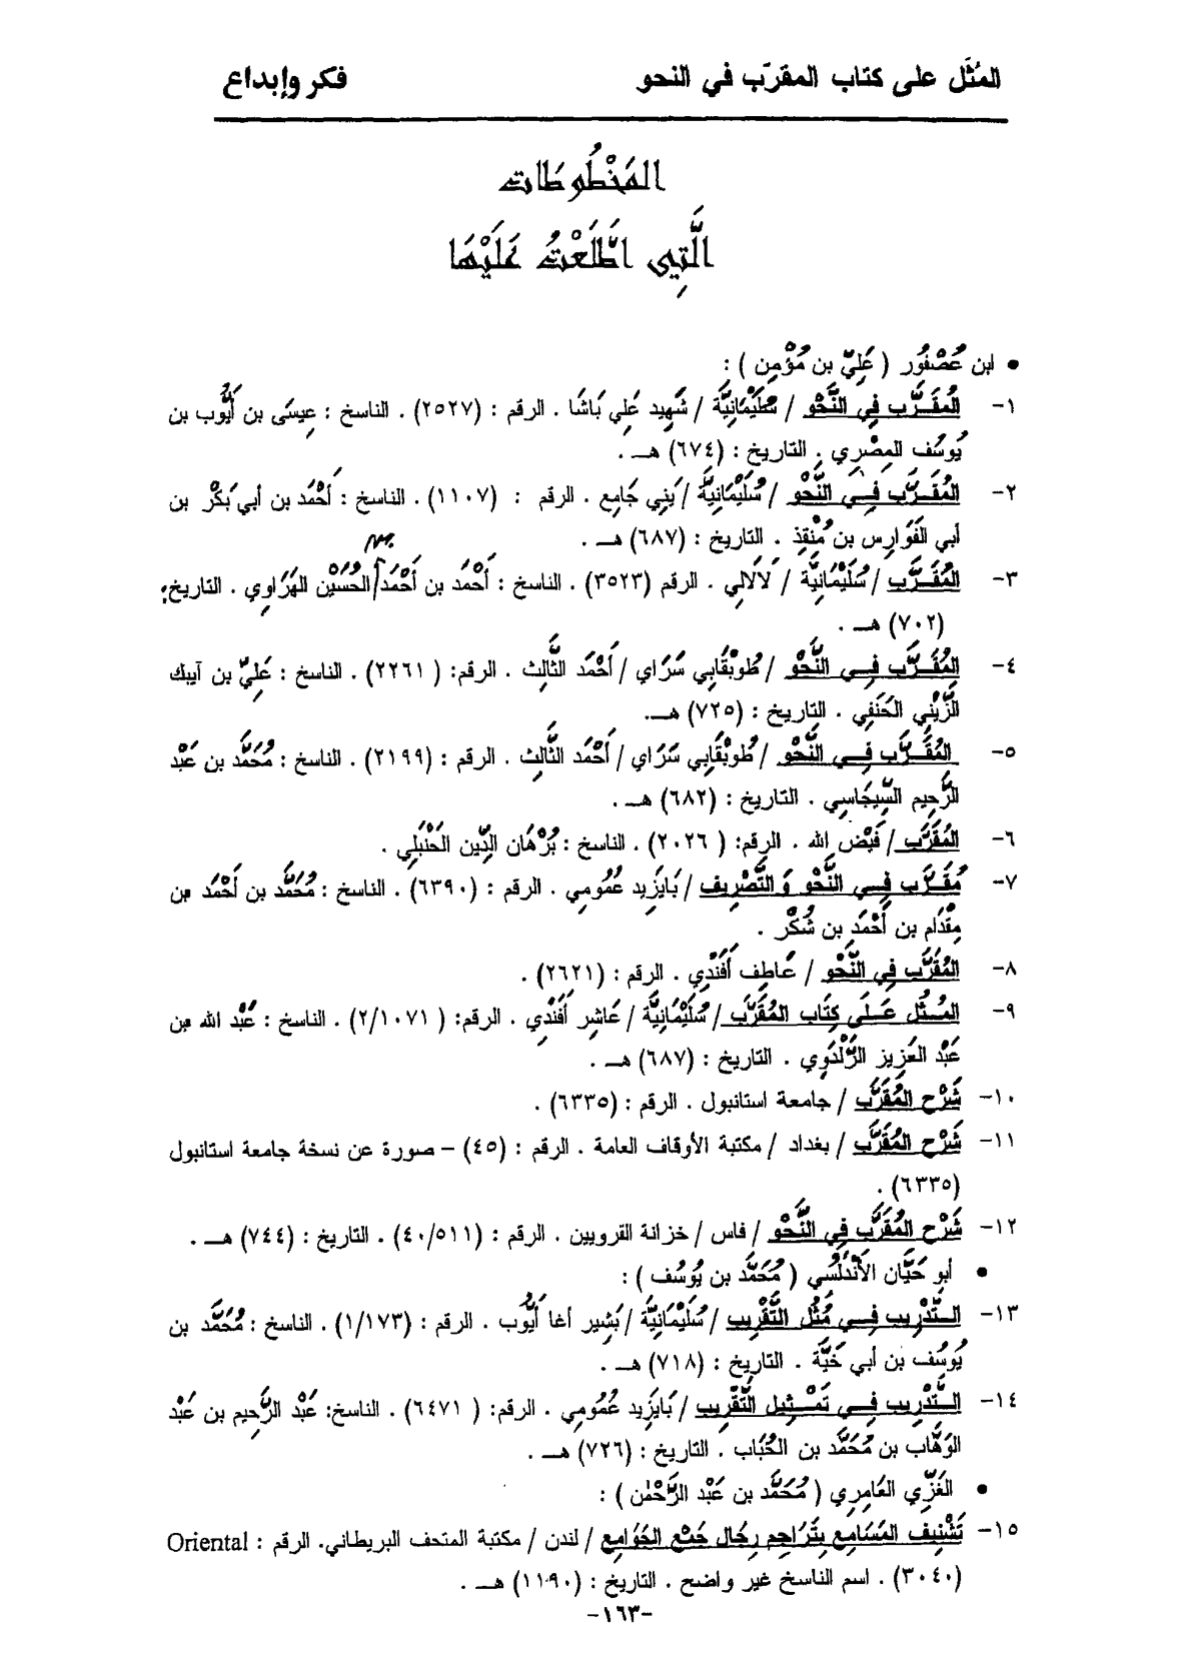 المُثَل على كتاب المقرّب في النحو فكر وإبداع
المَخْطُوطَات
الَّتِي اطَّلَعْتُ عَلَيْهَا
• ابن عُصْفُور ( عَلِيّ بن مُؤْمِن ) :
١- المُقَــرَّب فِي النَّحْو / سُلَيْمَانِيَّة / شَهِيد عَلِي بَاشَا . الرقم : (٢٥٢٧) . الناسخ : عِيسَى بن أَيُّوب بن
يُوسُف المِصْرِي . التاريخ : (٦٧٤) هــ .
٢- المُقَــرَّب فِــي النَّحْو / سُلَيْمَانِيَّة / يَنِي جَامِع . الرقم : (١١٠٧) . الناسخ : أَحْمَد بن أبي بَكْر بن
أبي الفَوَارِس بن مُنْقِذ . التاريخ : (٦٨٧) هــ .
٣- المُقَــرَّب / سُلَيْمَانِيَّة / لَالَالِي . الرقم (٣٥٢٣) . الناسخ : أَحْمَد بن أَحْمَد الحُسَيْن الهَرَاوِي . التاريخ:
(٧٠٢) هــ .
٤- المُقَــرَّب فِــي النَّحْو / طُوبْقَابِي سَرَاي / أَحْمَد الثَّالِث . الرقم: ( ٢٢٦١) . الناسخ : عَلِيّ بن آيبك
الزَّيْنِي الحَنَفِي . التاريخ : (٧٢٥) هــ.
٥- المُقَــرَّب فِــي النَّحْو / طُوبْقَابِي سَرَاي / أَحْمَد الثَّالِث . الرقم : (٢١٩٩) . الناسخ : مُحَمَّد بن عَبْد
الرَّحِيم السِّيجَاسِي . التاريخ : (٦٨٢) هــ .
٦- المُقَرَّب / فَيْض الله . الرقم: ( ٢٠٢٦) . الناسخ : بُرْهَان الدِّين الحَنْبَلِي .
٧- مُقَــرَّب فِــي النَّحْو وَ التَّصْرِيف / بَايَزِيد عُمُومِي . الرقم : (٦٣٩٠) . الناسخ : مُحَمَّد بن أَحْمَد بن
مِقْدَام بن أَحْمَد بن شُكْر .
٨- المُقَرَّب فِي النَّحْو / عَاطِف أَفَنْدِي . الرقم : (٢٦٢١) .
٩- المُــثُل عَــلَى كِتَاب المُقَرَّب / سُلَيْمَانِيَّة / عَاشِر أَفَنْدِي . الرقم: ( ٢/١٠٧١) . الناسخ : عَبْد الله بن
عَبْد العَزِيز الزَّلْدَوِي . التاريخ : (٦٨٧) هــ .
١٠- شَرْح المُقَرَّب / جامعة استانبول . الرقم : (٦٣٣٥) .
١١- شَرْح المُقَرَّب / بغداد / مكتبة الأوقاف العامة . الرقم : (٤٥) – صورة عن نسخة جامعة استانبول
(٦٣٣٥) .
١٢- شَرْح المُقَرَّب فِي النَّحْو / فاس / خزانة القرويين . الرقم : (٤٠/٥١١) . التاريخ : (٧٤٤) هــ .
• أبو حَيَّان الأَنْدَلُسِي ( مُحَمَّد بن يُوسُف ) :
١٣- الــتَّدْرِيب فِــي مُثُل التَّقْرِيب / سُلَيْمَانِيَّة / بَشِير أغا أَيُّوب . الرقم : (١/١٧٣) . الناسخ : مُحَمَّد بن
يُوسُف بن أبي حَيَّة . التاريخ : (٧١٨) هــ .
١٤- الــتَّدْرِيب فِــي تَمْــثِيل التَّقْرِيب / بَايَزِيد عُمُومِي . الرقم: ( ٦٤٧١) . الناسخ: عَبْد الرَّحِيم بن عَبْد
الوَهَّاب بن مُحَمَّد بن الحُبَاب . التاريخ : (٧٢٦) هــ .
• الغَزِّي العَامِرِي ( مُحَمَّد بن عَبْد الرَّحْمٰن ) :
١٥- تَشْنِيف المَسَامِع بِتَرَاجِم رِجَال جَمْع الجَوَامِع / لندن / مكتبة المتحف البريطاني. الرقم : Oriental
(٣٠٤٠) . اسم الناسخ غير واضح . التاريخ : (١١٩٠) هــ .
-١٦٣-